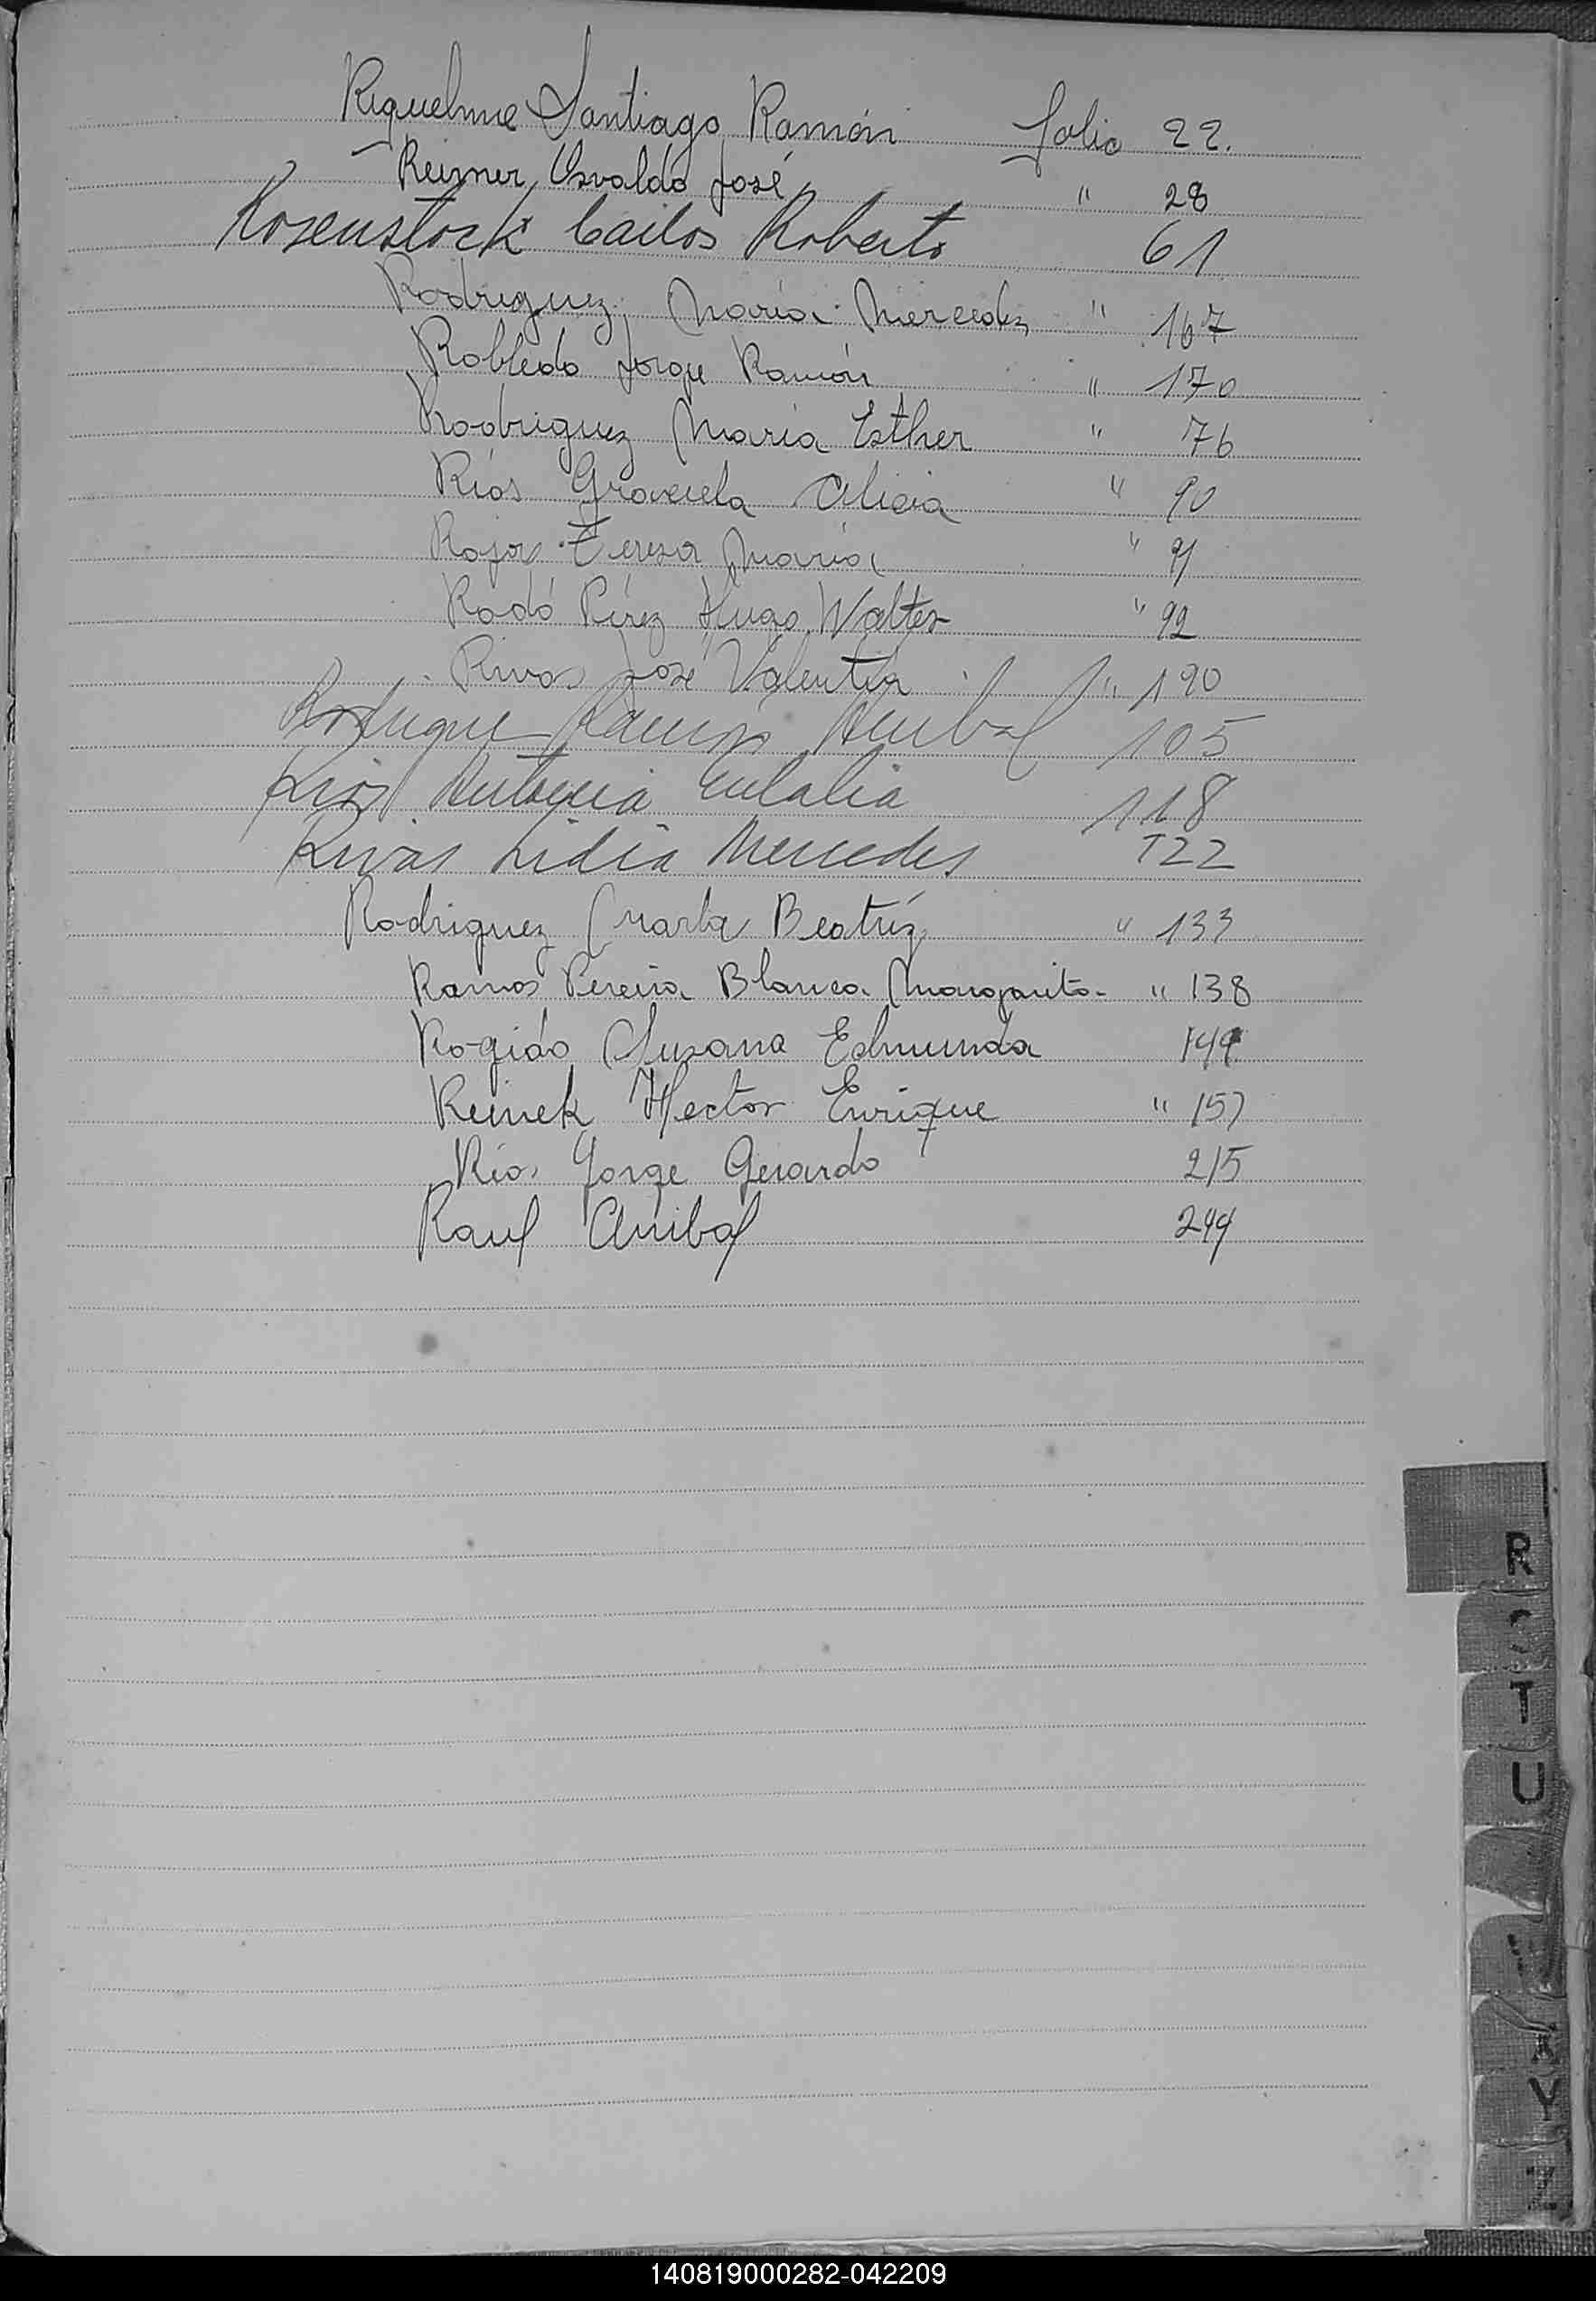 Riquelme Santiago Ramón Folio 22.
Reimer Osvaldo José " 28
Rosenstock Carlos Roberto 61
Rodriguez María Mercedes " 167
Robledo Jorge Ramón " 170
Rodriguez María Esther " 76
Ríos Graciela Alicia " 90
Rojas Teresa María " 91
Rodó Pérez Hugo Walter " 92
Rivas José Valentin " 190
Ramón Anibal 105
Rios Eulalia 118
Rivas Lidia Mercedes 122
Rodriguez Marta Beatríz " 133
Ramos Pereira Blanca Margarita - " 138
Susana Edmunda 149
Reinek Hector Enrique " 157
Rios Jorge Gerardo 215
Raul Anibal 244
R
S
T
U
V
X
Y
Z
140819000282-042209